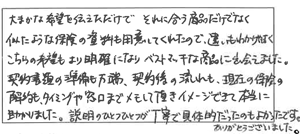 大まかな希望を伝えただけで それに合う商品だけでなく
似たような保険の資料も用意してくれたので、違いもわかりやすく
こちらの希望もより明確になり ベストマッチな商品に出会えました。
契約書類の準備も万端、契約後の流れも、現在の保険の
解約もタイミングや窓口までメモして頂きイメージできて本当に
助かりました。説明のひとつひとつが丁寧で具体的だったのもよかったです。
ありがとうございました。